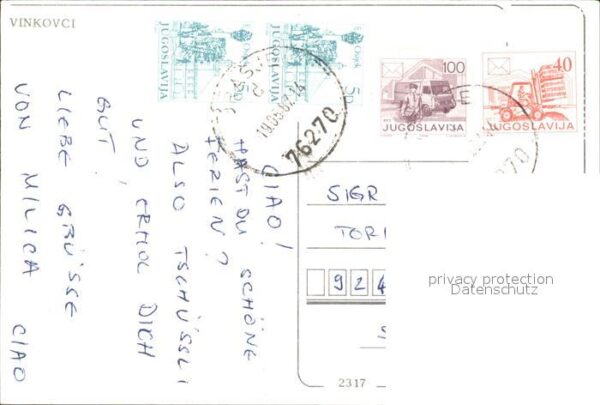 VINKOVCI
CIAO!
HAST DU SCHÖNE
FERIEN?
ALSO TSCHÜSSLI
UND ERHOL DICH
GUT!
LIEBE GRÜSSE
VON MILICA CIAO
JUGOSLAVIJA
JUGOSLAVIJA
5D
19.05.87.14
76270
100
JUGOSLAVIJA
40
JUGOSLAVIJA
SIGR
TORI
924
S
privacy protection
Datenschutz
2317